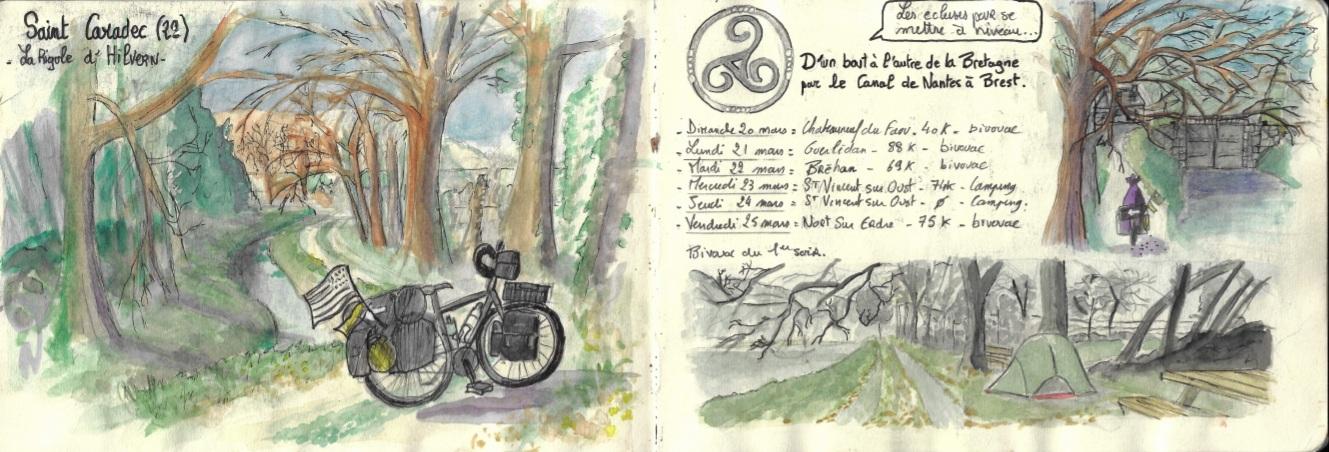 Saint Caradec (22)
- La Rigole d'Hilvern -
Les écluses pour se
mettre à niveau...
D'un bout à l'autre de la Bretagne
par le Canal de Nantes à Brest.
- Dimanche 20 mars = Chateauneuf du Faou - 40 K - bivouac
- Lundi 21 mars = Guerlédan - 88 K - bivouac
- Mardi 22 mars = Bréhan - 69 K - bivouac
- Mercredi 23 mars = St Vincent sur Oust - 74K - Camping
- Jeudi 24 mars = St Vincent sur Oust - Ø - Camping.
- Vendredi 25 mars = Nort Sur Erdre - 75 K - bivouac
Bivouac du 1er soir.